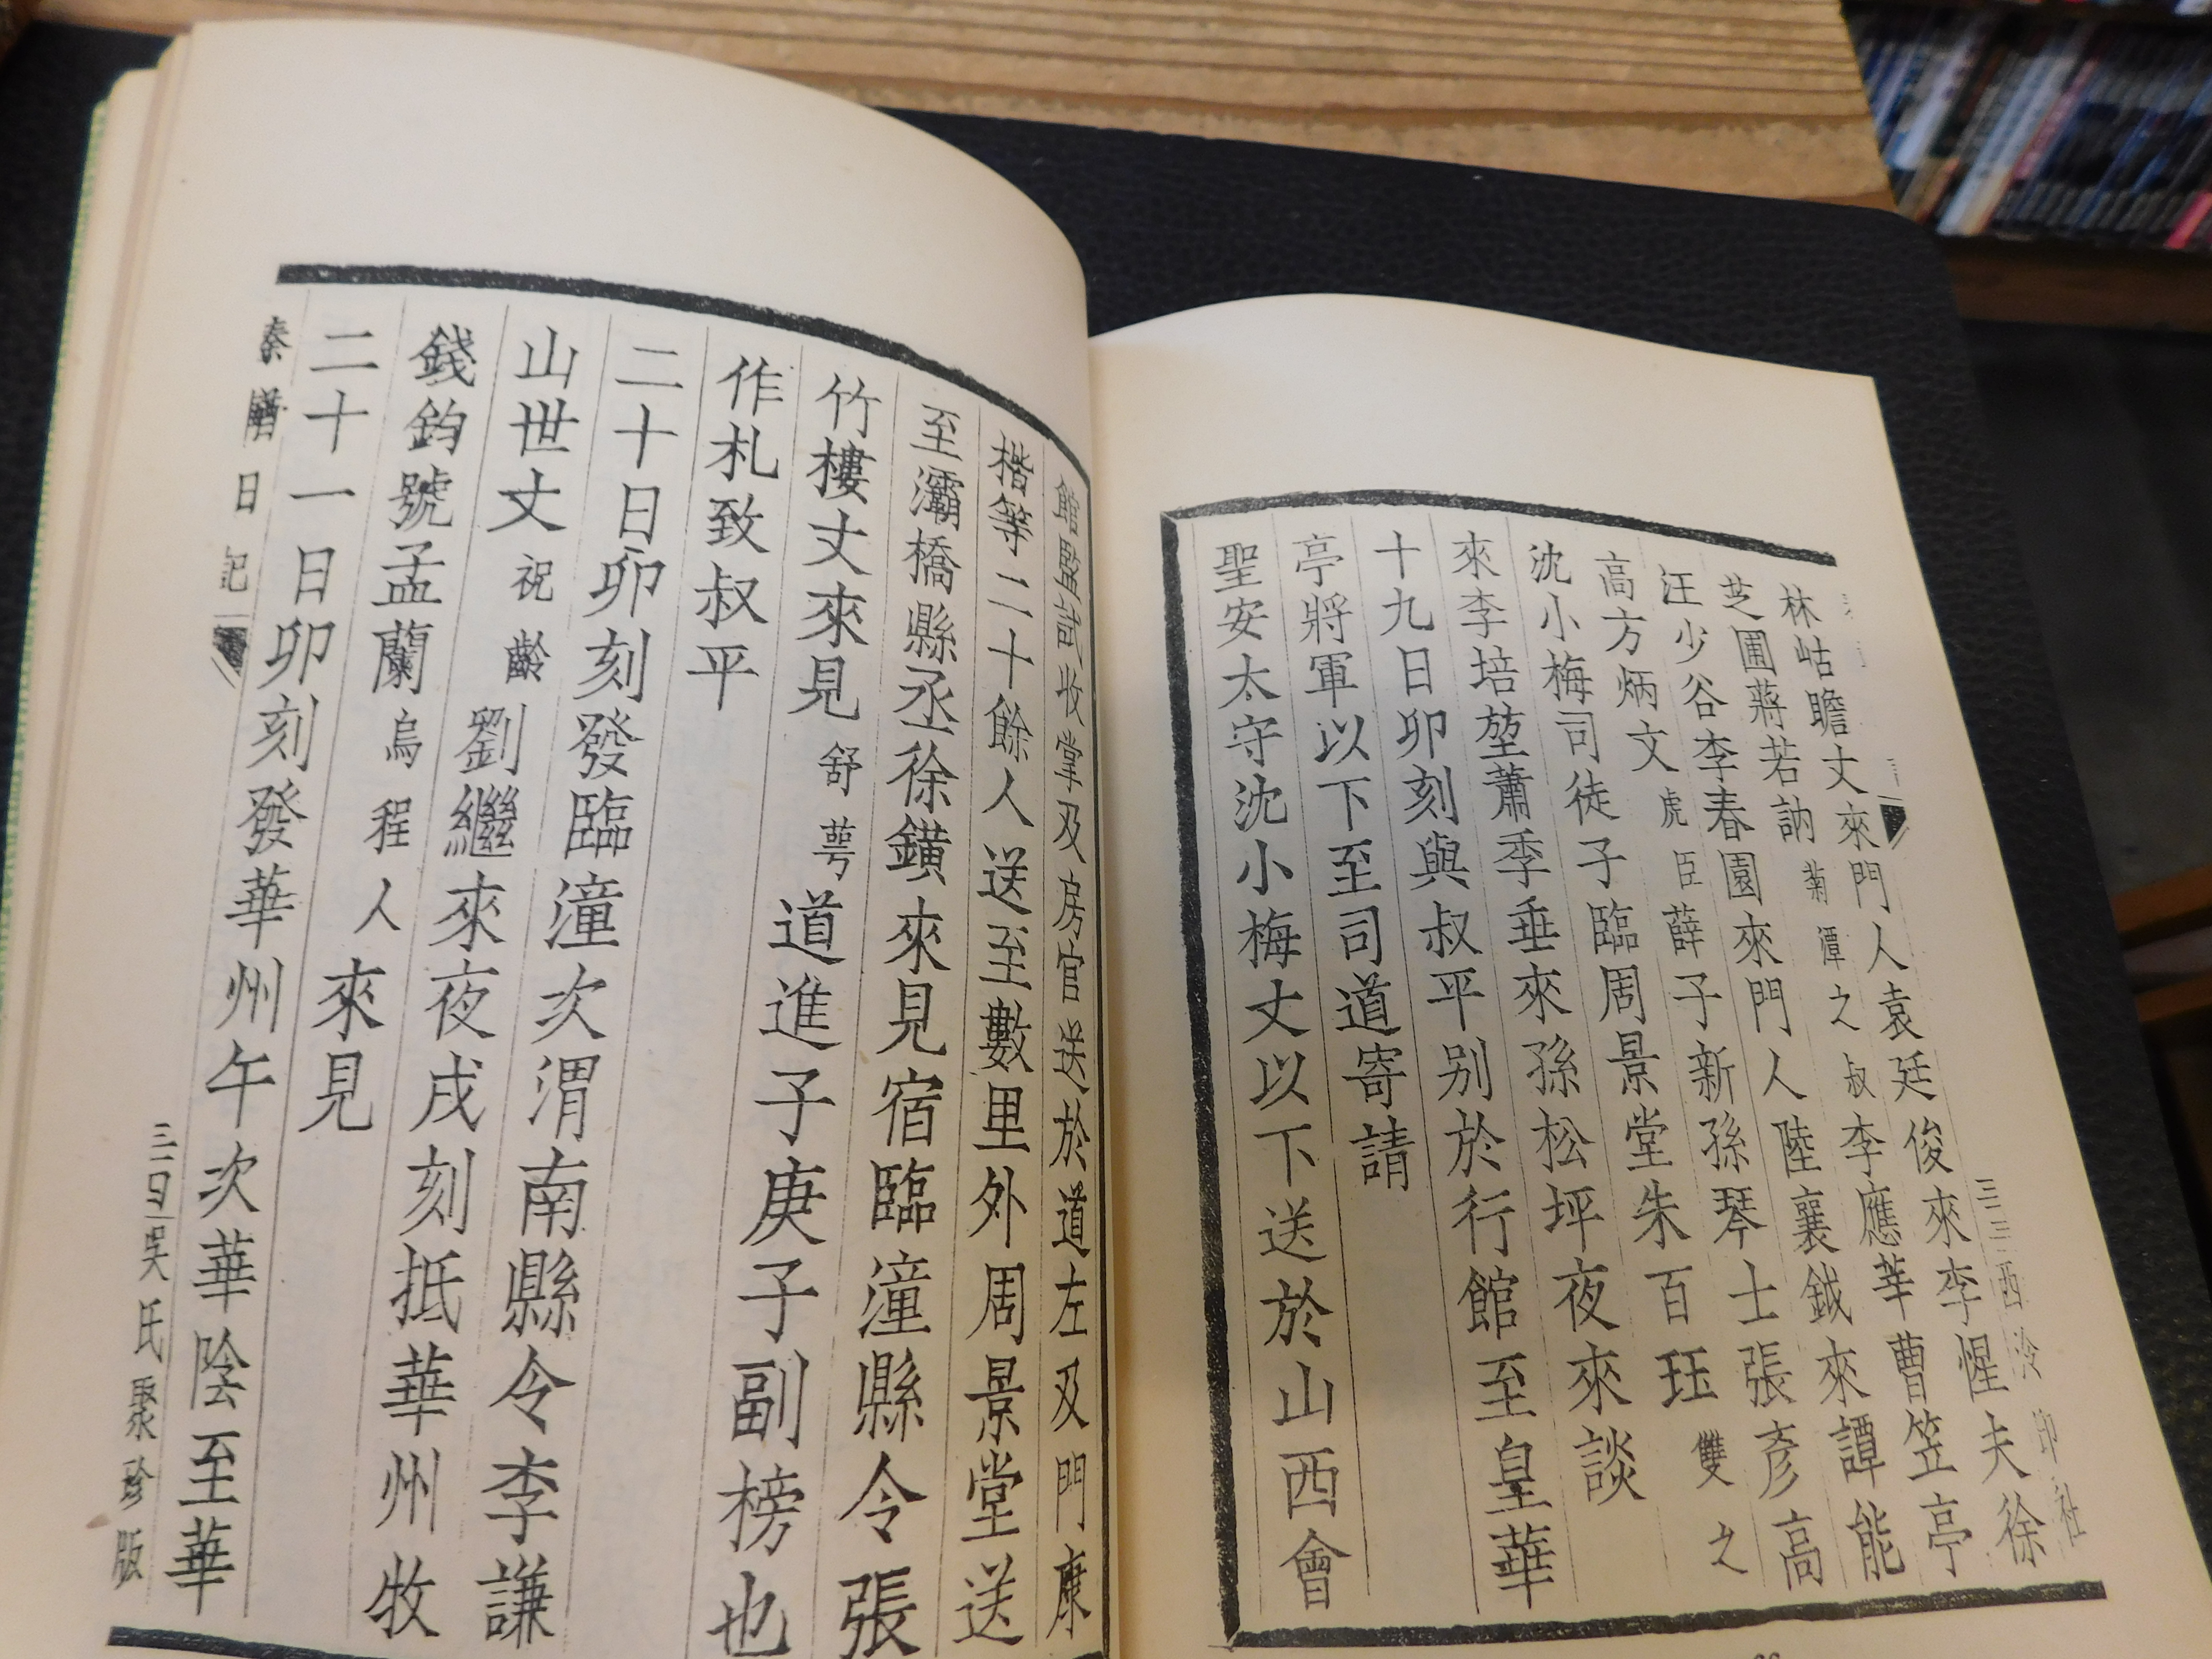 林岵瞻丈來門人袁廷俊來李惺夫徐
芝圃蔣若訥菊潭之叔李應莘曹笠亭
汪少谷李春園來門人陸襄鉞來譚能
高方炳文虎臣薛子新孫琴士張彥高
沈小梅司徒子臨周景堂朱百玨雙之
來李培堃蕭季垂來孫松坪夜來談
十九日卯刻與叔平別於行館至皇華
亭將軍以下至司道寄請
聖安太守沈小梅丈以下送於山西會
館監試收掌及房官送於道左及門康
楷等二十餘人送至數里外周景堂送
至灞橋縣丞徐鐄來見宿臨潼縣令張
竹樓丈來見舒萼道進子庚子副榜也
作札致叔平
二十日卯刻發臨潼次渭南縣令李謙
山世丈祝齡劉繼來夜戌刻抵華州牧
錢鈞號孟蘭烏程人來見
二十一日卯刻發華州午次華陰至華
秦輶日記
三四 吳氏聚珍版
三三 西泠印社